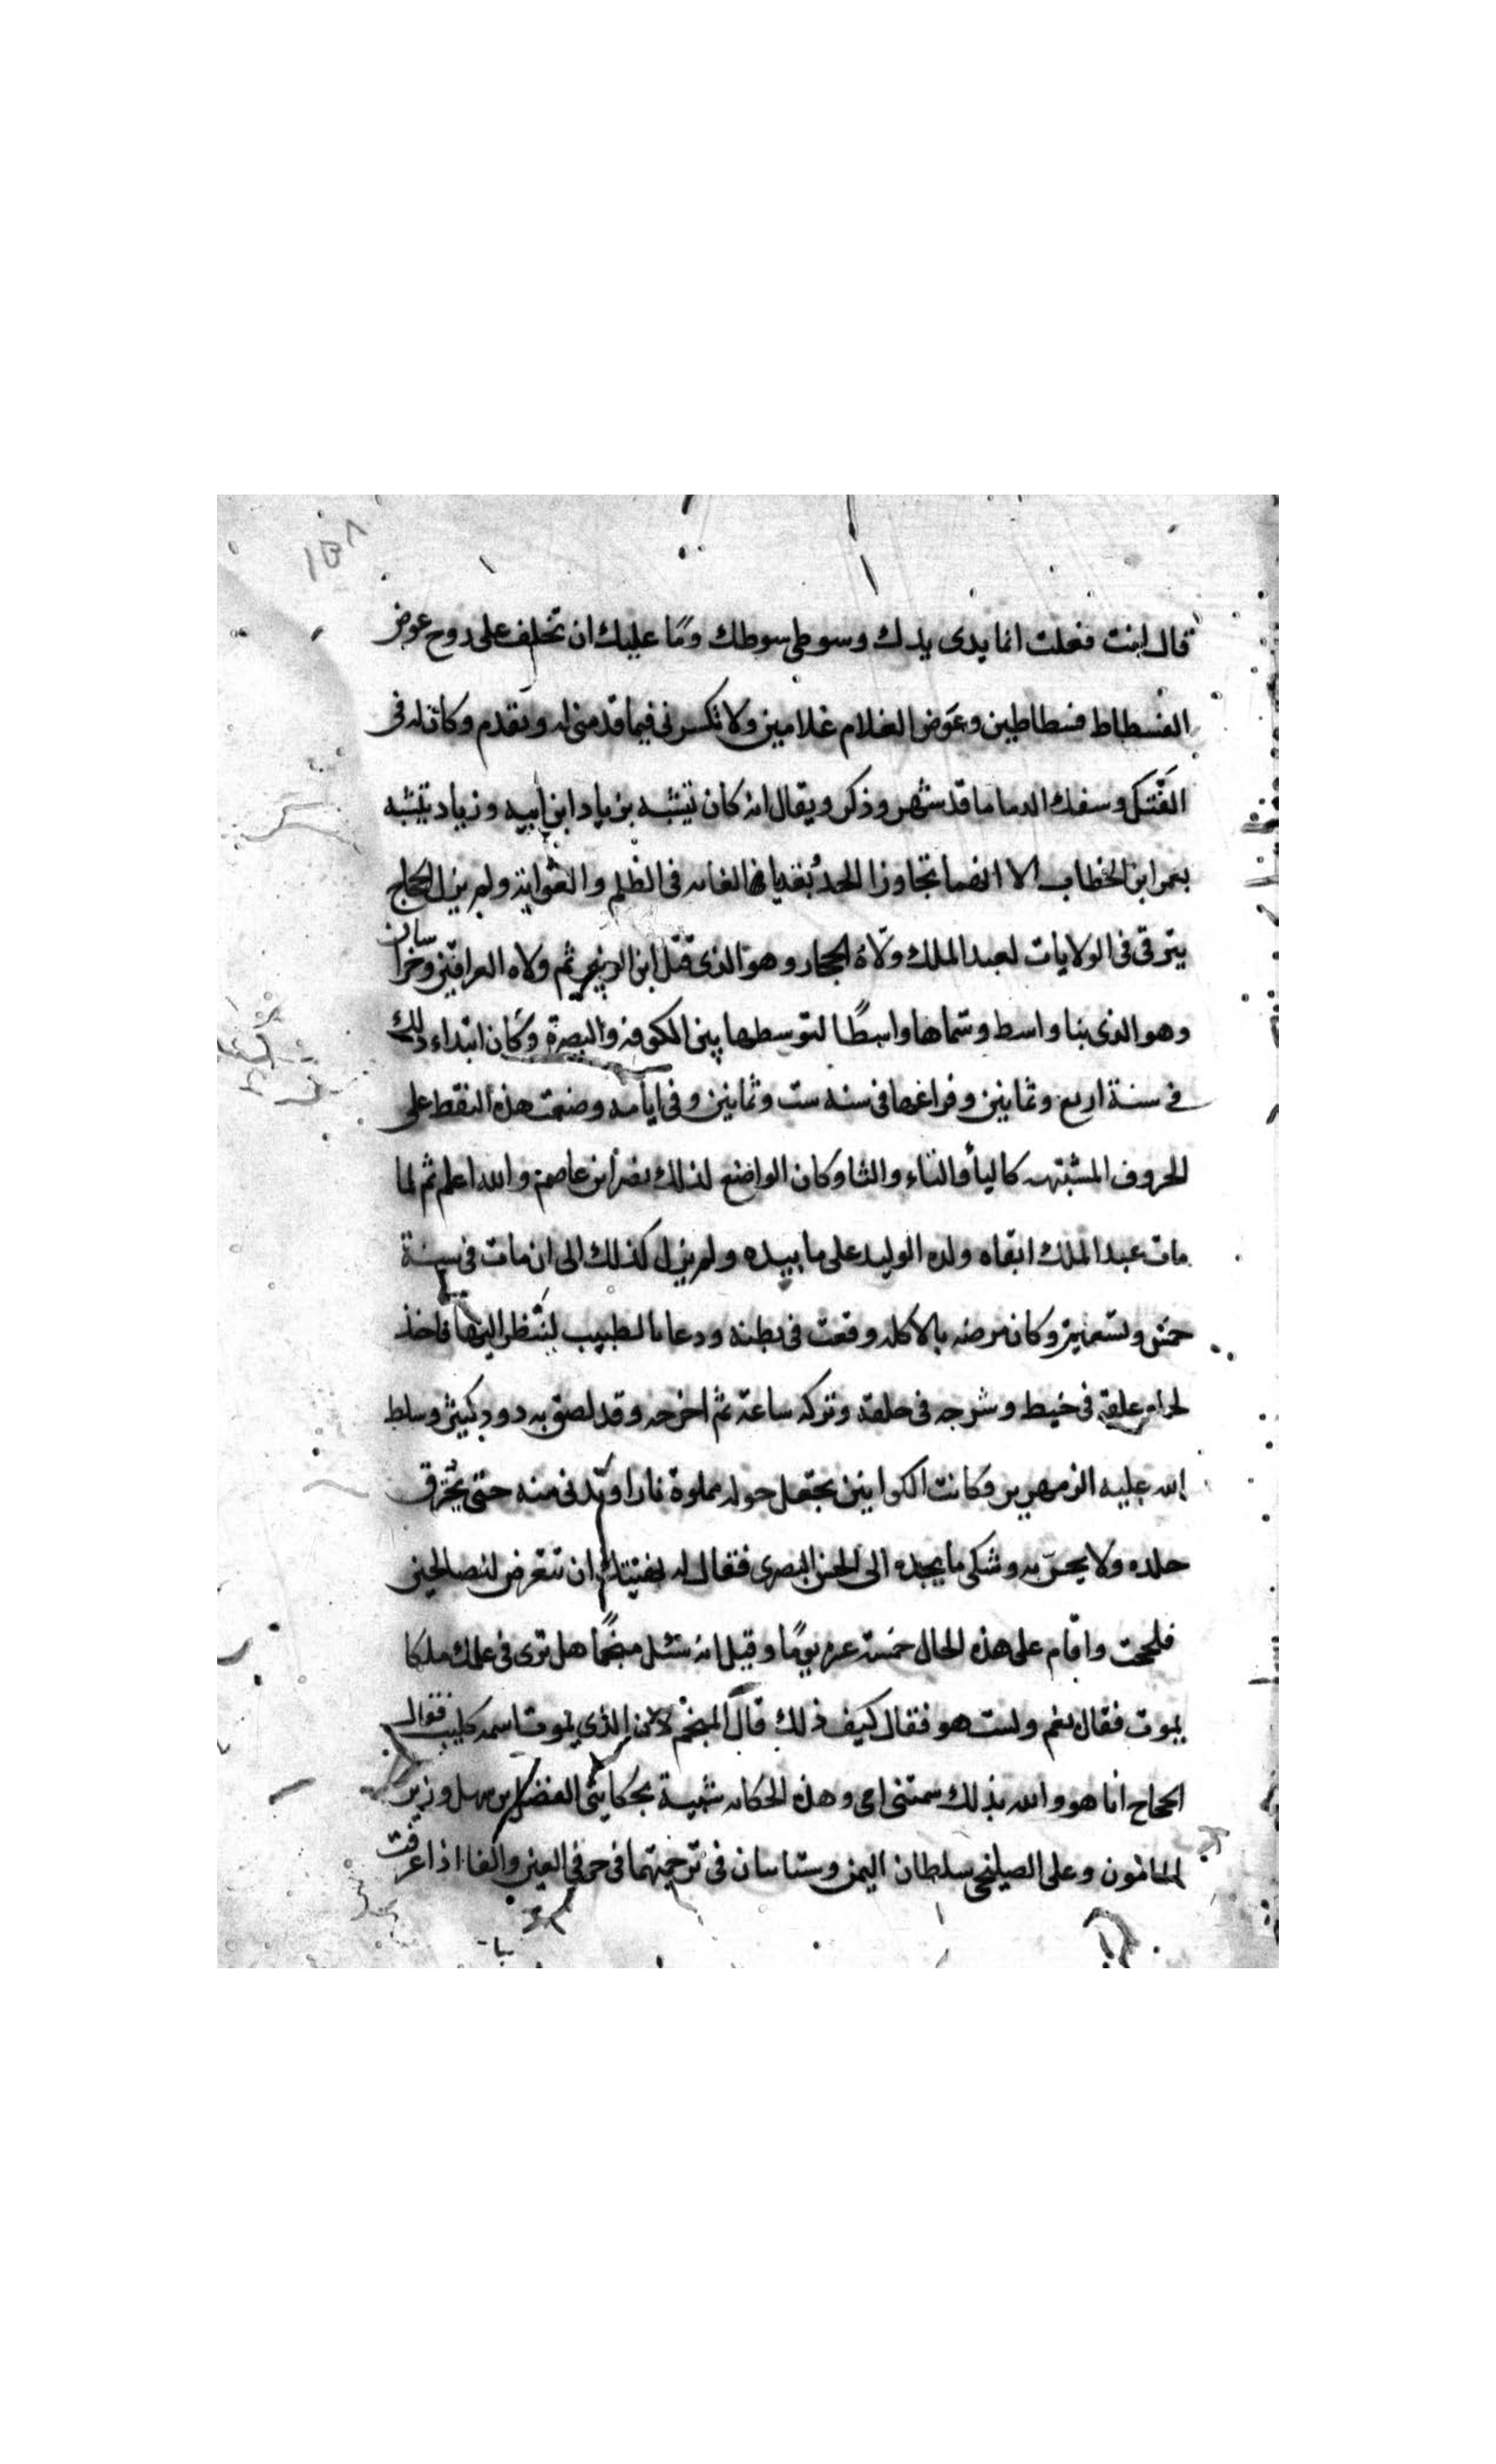 ١٥٨
قال انت فعلت انما يدى يدك وسوطى سوطك وما عليك ان تخلف على روح عوض
الفسطاط فسطاطين وعوض الغلام غلامين ولا تكسرنى فيما قدمنى له وتقدم وكان له فى
الفتك وسفك الدما ما قد شهر وذكر ويقال انه كان يتشبه بزياد ابن ابيه وزياد يتشبه
بعمر ابن الخطاب الا انهما تجاوزا الحد فى الظلم والغواية ولم يزل الحجاج
يترقى فى الولايات لعبد الملك ولاه الحجاز وهو الذى قتل ابن الزبير ثم ولاه العراقين وخراسان
وهو الذى بنا واسط وسماها واسطًا لتوسطها بين الكوفه والبصرة وكان ابتداء ذلك
فى سنة اربع وثمانين وفراغها فى سنه ست وثمانين وفى ايامه وضعت هذه النقط على
الحروف المشبته كاليأ والتاء والثا وكان الواضع لذلك نصر ابن عاصم والله اعلم ثم لما
مات عبد الملك ابقاه ولده الوليد على ما بيده ولم يزل كذلك الى ان مات فى سنة
خمس وتسعين وكان مرضه بالاكله وقعت فى بطنه ودعا بالطبيب لينظر اليها فاخذ
لحما علقه فى خيط وسرجه فى حلقه وتركه ساعة ثم اخرجه وقد لصق به دود كبير وسلط
الله عليه الزمهرير وكانت الكوانين تجعل حوله مملوة نارا وتدنى منه حتى يحترق
جلده ولا يحس به وشكى ما يجده الى الحسن البصرى فقال له نهيتك ان تتعرض للصالحين
فلححت واقام على هذه الحال خمسة عشر يومًا وقيل انه سئل منجمًا هل ترى فى علمك ملكا
يموت فقال نعم ولست هو فقال كيف ذلك قال المنجم لان الذى يموت اسمه كليب فقال
الحجاج انا هو والله بذلك سمتنى امى وهذه الحكايه شبيهة بحكايتى الفضل بن سهل وزير
المامون وعلى الصيلحى سلطان اليمن وستاتيان فى ترجمتهما فى حرفى العين والفا اذا عرفت